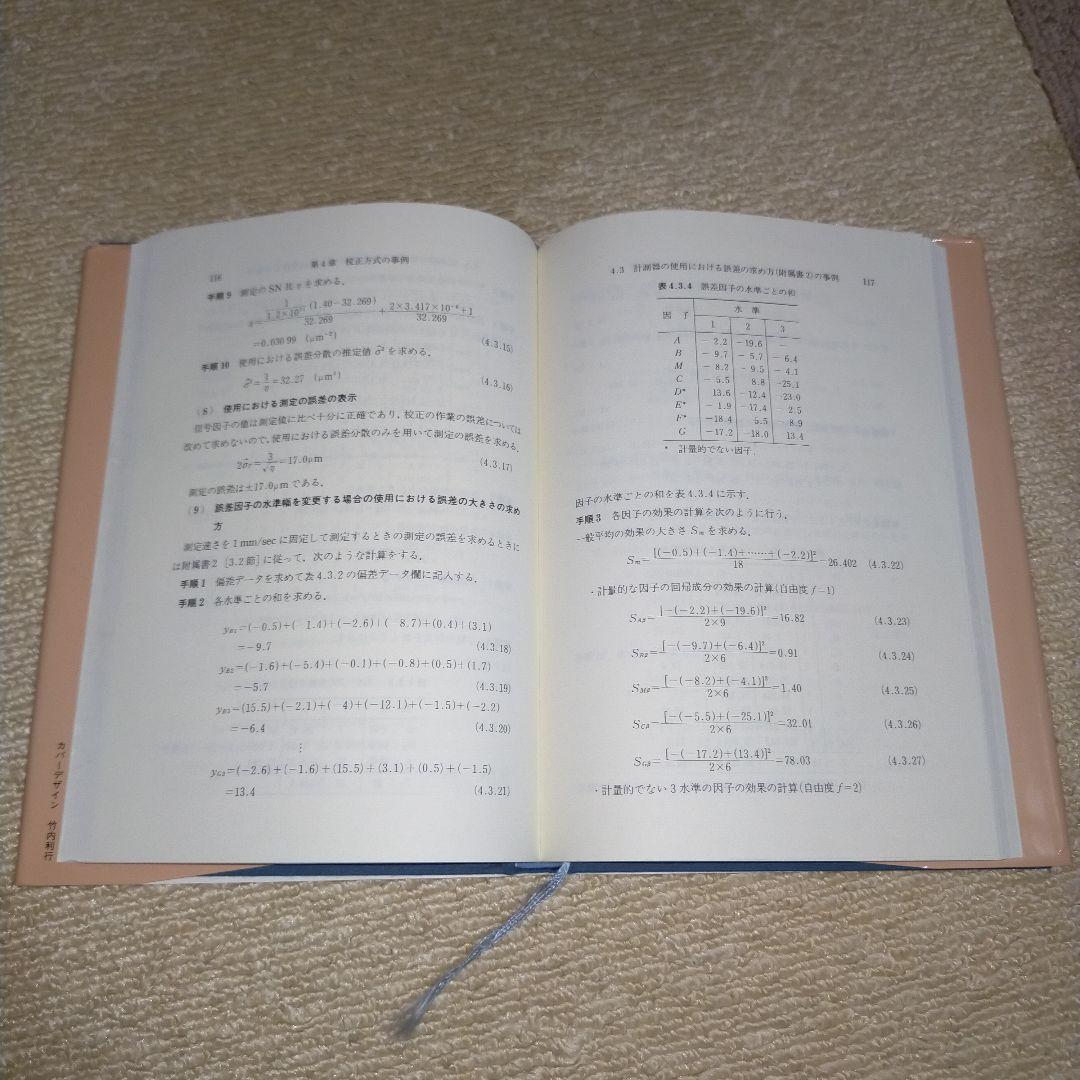 116
第4章 校正方式の事例
手順9 測定のSN比ηを求める.
=0.03099 (μm⁻²) (4.3.15)
手順10 使用における誤差分散の推定値 σ̂² を求める.
σ̂²=1/η=32.27 (μm²) (4.3.16)
(8) 使用における測定の誤差の表示
信号因子の値は測定値に比べ十分に正確であり,校正の作業の誤差については
改めて求めないので,使用における誤差分散のみを用いて測定の誤差を求める.
=3/√η=17.0μm (4.3.17)
測定の誤差は±17.0μmである.
(9) 誤差因子の水準幅を変更する場合の使用における誤差の大きさの求め
方
測定速さを1mm/secに固定して測定するときの測定の誤差を求めるときに
は附属書2 [3.2節]に従って,次のような計算をする.
手順1 偏差データを求めて表4.3.2の偏差データ欄に記入する.
手順2 各水準ごとの和を求める.
y_B1=(-0.5)+(-1.4)+(-2.6)+(-8.7)+(0.4)+(3.1)
=-9.7 (4.3.18)
y_B2=(-1.6)+(-5.4)+(-0.1)+(-0.8)+(0.5)+(1.7)
=-5.7 (4.3.19)
y_B3=(15.5)+(-2.1)+(-4)+(-12.1)+(-1.5)+(-2.2)
=-6.4 (4.3.20)
⋮
y_G3=(-2.6)+(-1.6)+(15.5)+(3.1)+(0.5)+(-1.5)
=13.4 (4.3.21)
カバーデザイン 竹内利行
4.3 計測器の使用における誤差の求め方(附属書2)の事例 117
表4.3.4 誤差因子の水準ごとの和
因子 水準
1 2 3
A -2.2 -19.6 —
B -9.7 -5.7 -6.4
M -8.2 -9.5 -4.1
C -5.5 8.8 -25.1
D* 13.6 -12.4 -23.0
E* -1.9 -17.4 -2.5
F* -18.4 5.5 -8.9
G -17.2 -18.0 13.4
* 計量的でない因子.
因子の水準ごとの和を表4.3.4に示す.
手順3 各因子の効果の計算を次のように行う.
一般平均の効果の大きさ S_m を求める.
S_m=[(-0.5)+(-1.4)+……+(-2.2)]²/18=26.402 (4.3.22)
・計量的な因子の回帰成分の効果の計算(自由度 f=1)
S_Aβ=[-(-2.2)+(-19.6)]²/2×9=16.82 (4.3.23)
S_Bβ=[-(-9.7)+(-6.4)]²/2×6=0.91 (4.3.24)
S_Mβ=[-(-8.2)+(-4.1)]²/2×6=1.40 (4.3.25)
S_Cβ=[-(-5.5)+(-25.1)]²/2×6=32.01 (4.3.26)
S_Gβ=[-(-17.2)+(13.4)]²/2×6=78.03 (4.3.27)
・計量的でない3水準の因子の効果の計算(自由度 f=2)